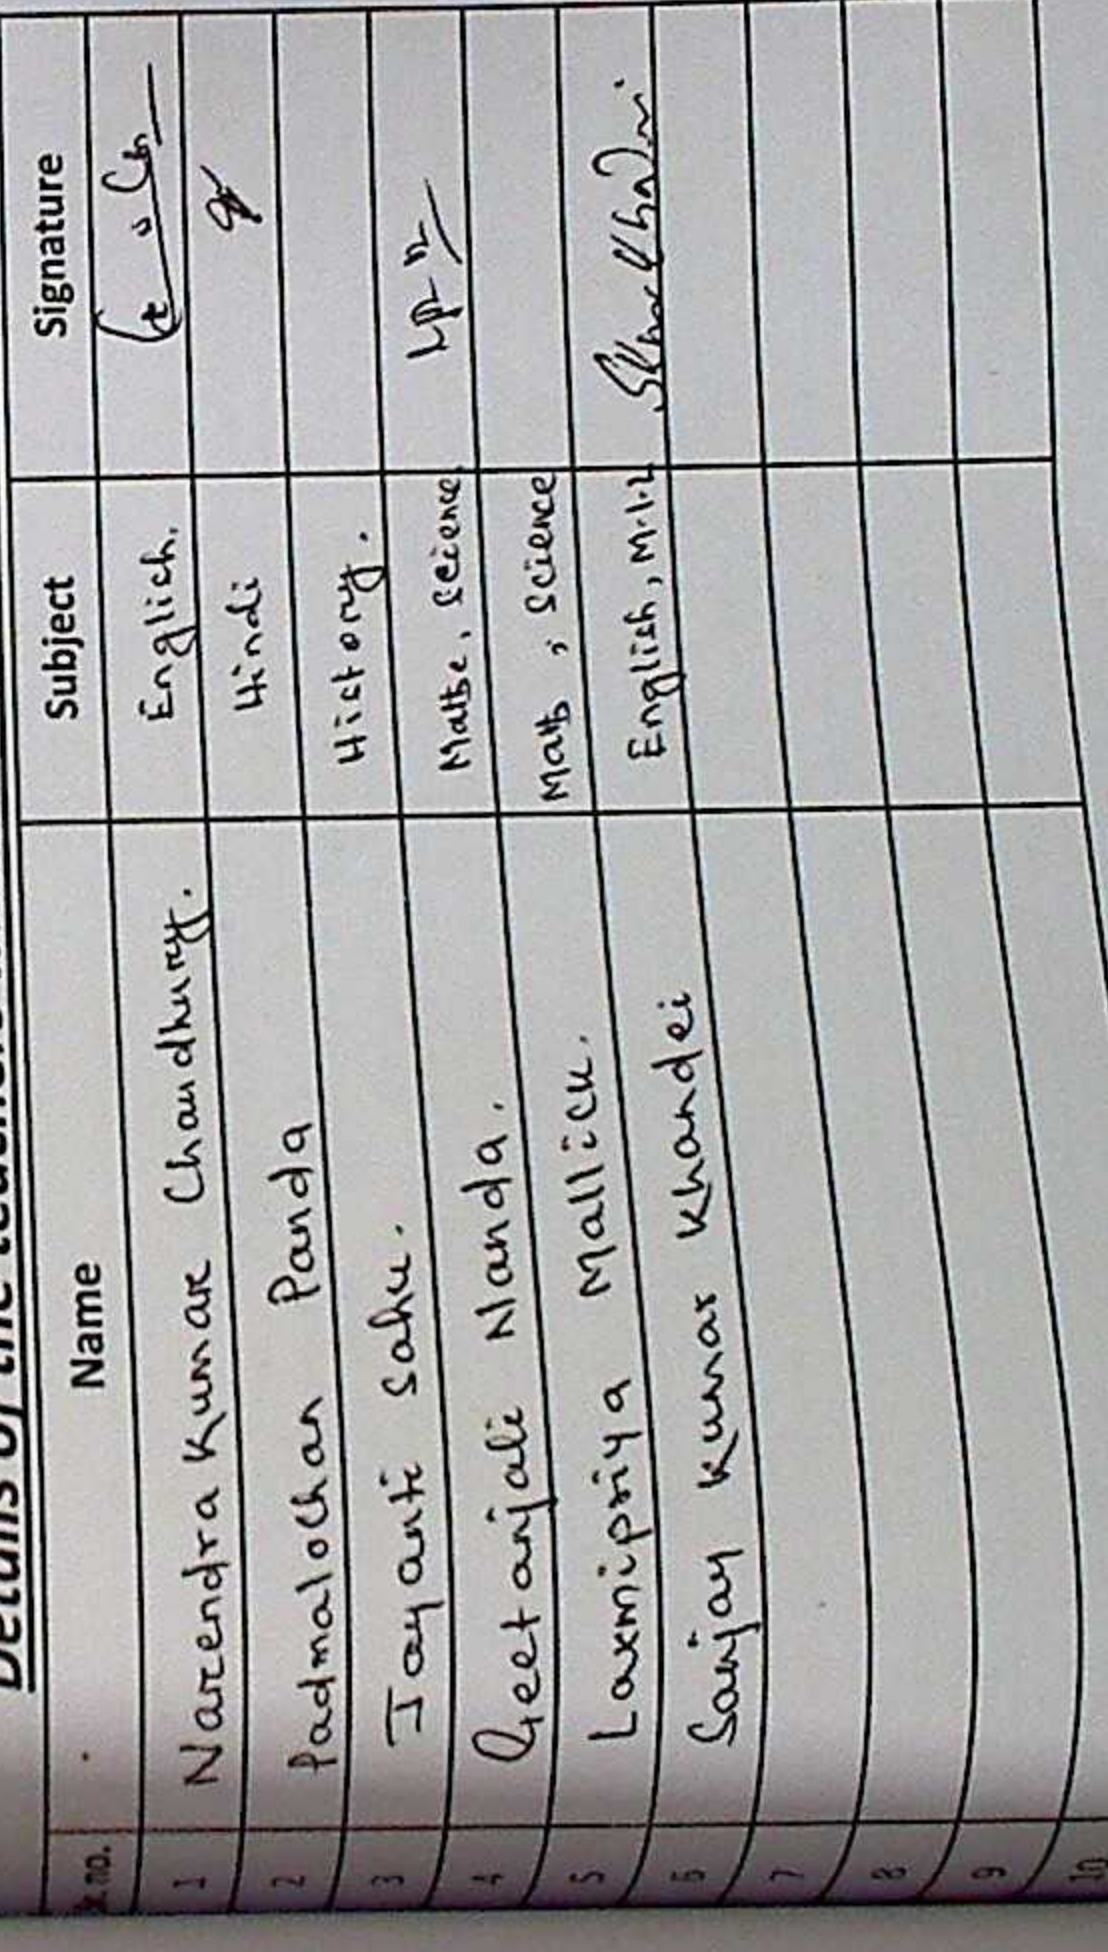 Details of the
Sr. no. Name Subject Signature
1 Narendra Kumar Chaudhury. English.
2 Padmalochan Panda Hindi
3 Jayanti Sahu. History.
4 Geetanjali Nanda. Maths, Science
5 Laxmipriya Mallick. Math, Science
6 Sanjay Kumar Khandei English, M.I.L
7
8
9
10